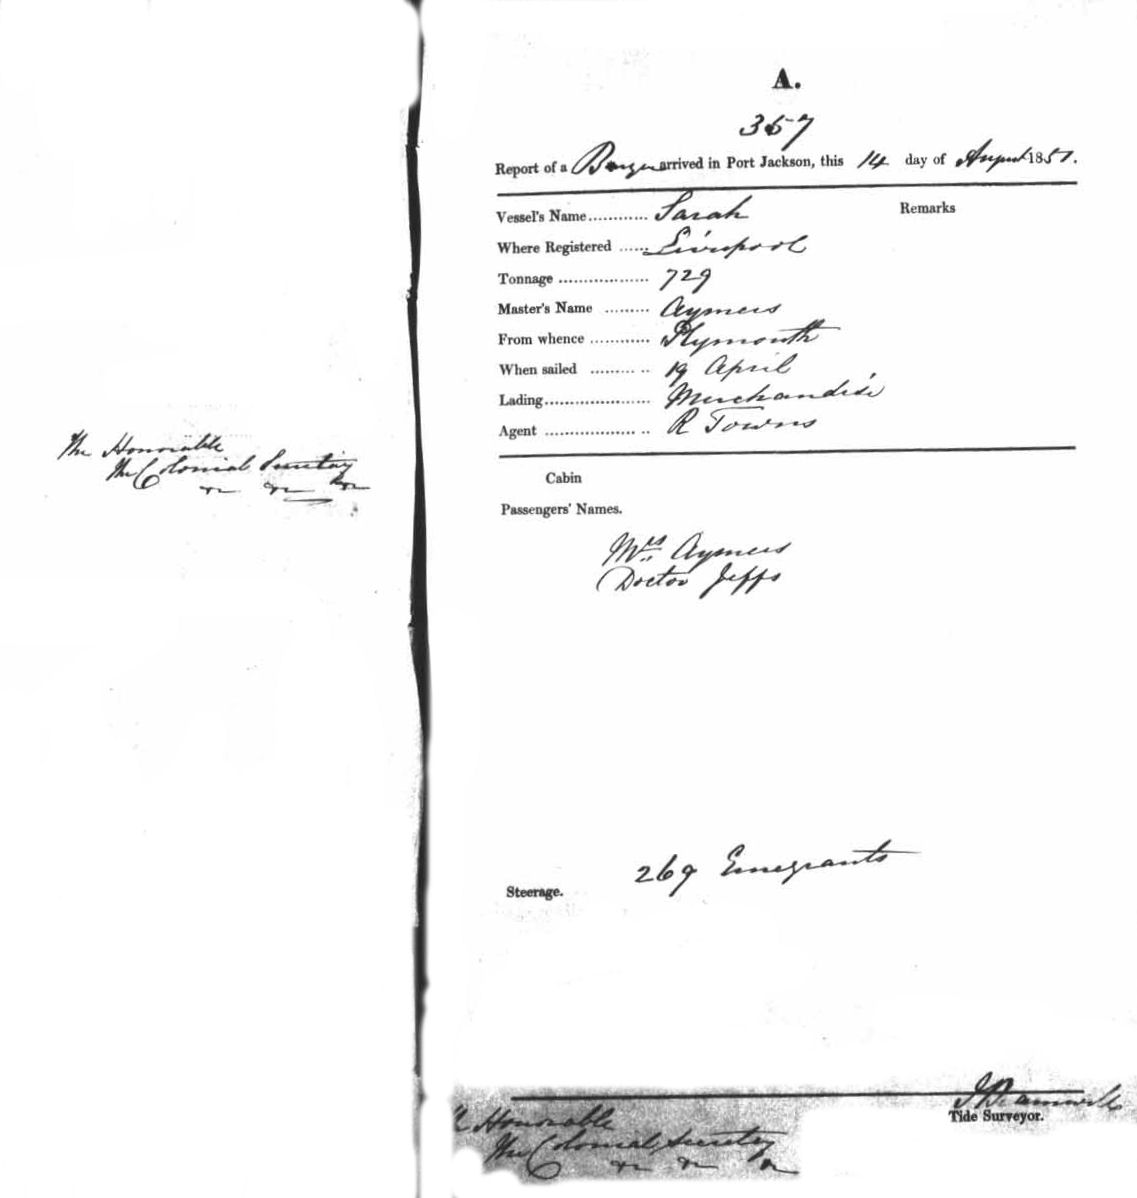 The Honorable
The Colonial Secretary
&c &c &c
A.
357
Report of a Barque arrived in Port Jackson, this 14 day of August 1851.
Remarks
Vessel's Name............ Sarah
Where Registered ...... Liverpool
Tonnage .................. 729
Master's Name ......... Aymers
From whence ............ Plymouth
When sailed ......... .. 19 April
Lading..................... Merchandise
Agent .................. .. R Towns
Cabin
Passengers' Names.
Mrs Aymers
Doctor Jeffs
Steerage. 269 Emegrants
Tide Surveyor.
Honorable
The Colonial Secretary
&c &c &c